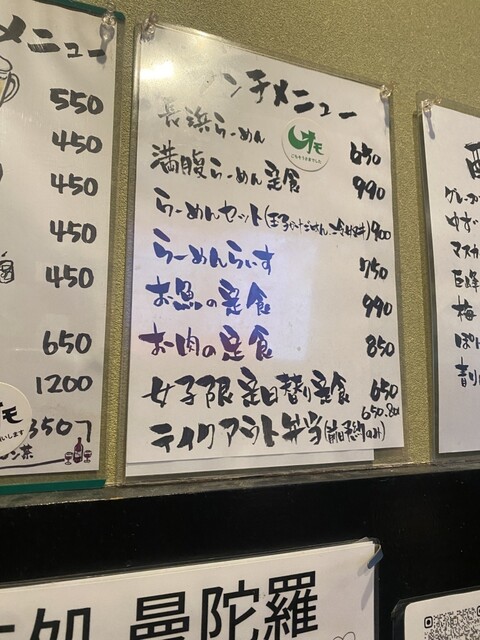 メニュー
550
450
450
450
450
650
1200
ンチメニュー
長浜らーめん 650
オモ
ごちそうさまでした
満腹らーめん定食 990
らーめんセット 900
らーめんらいす 750
お魚の定食 990
お肉の定食 850
女子限定日替り定食 650
650.800
テイクアウト弁当(前日予約のみ)
ゆず
マスカ
巨峰
梅
曼陀羅